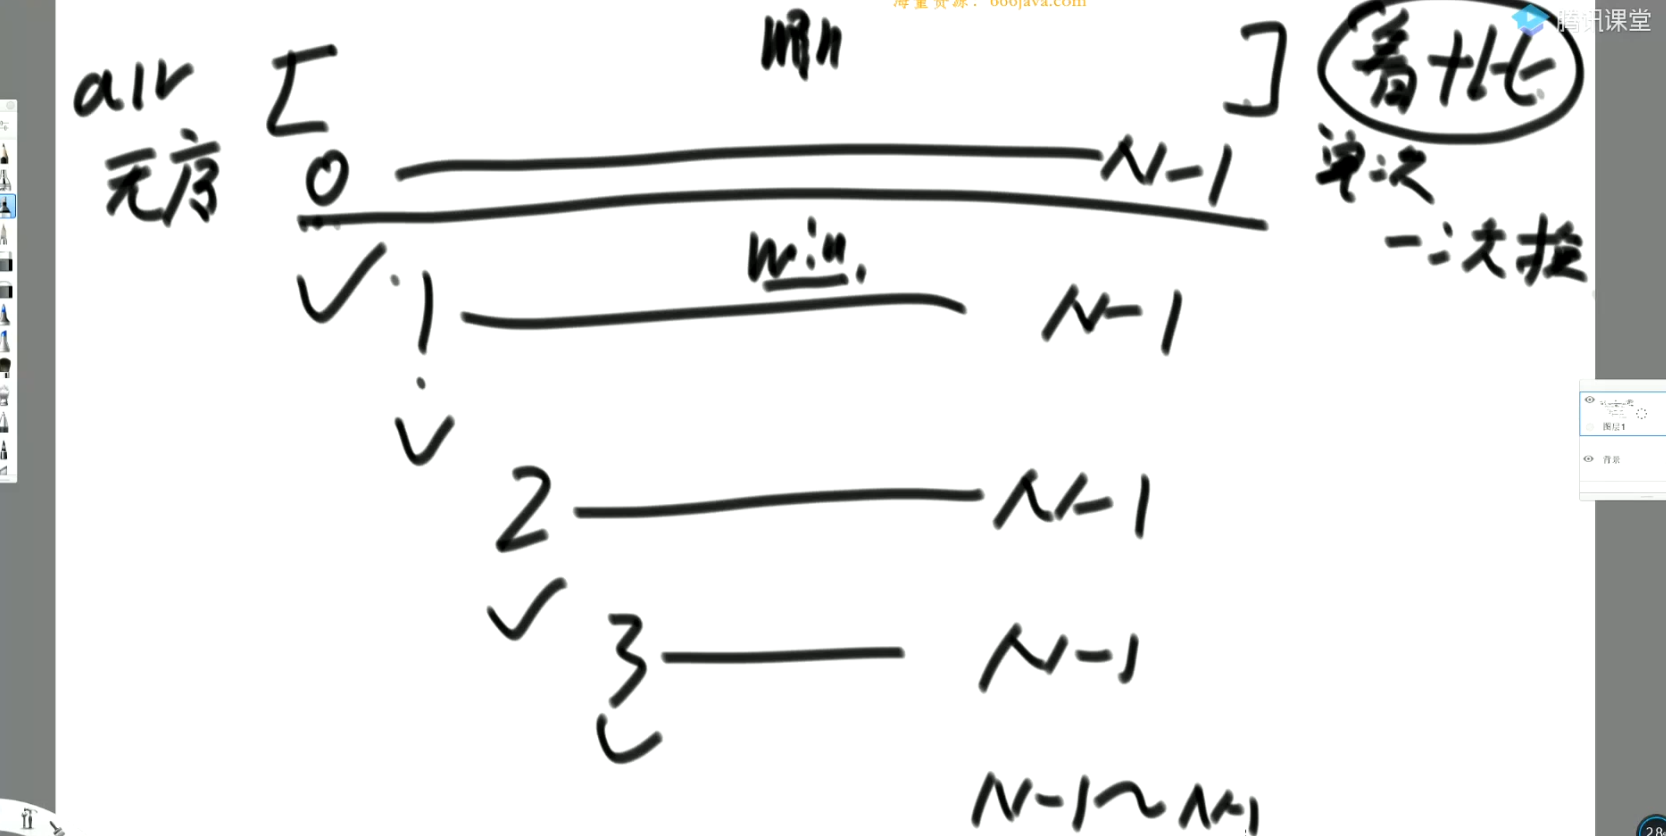 海量资源：666java.com
腾讯课堂
arr [ min ] 看+比
无序 0 N-1 单次
一次换
min
1 N-1
2 N-1
3 N-1
N-1~N-1
图层1
背景
28